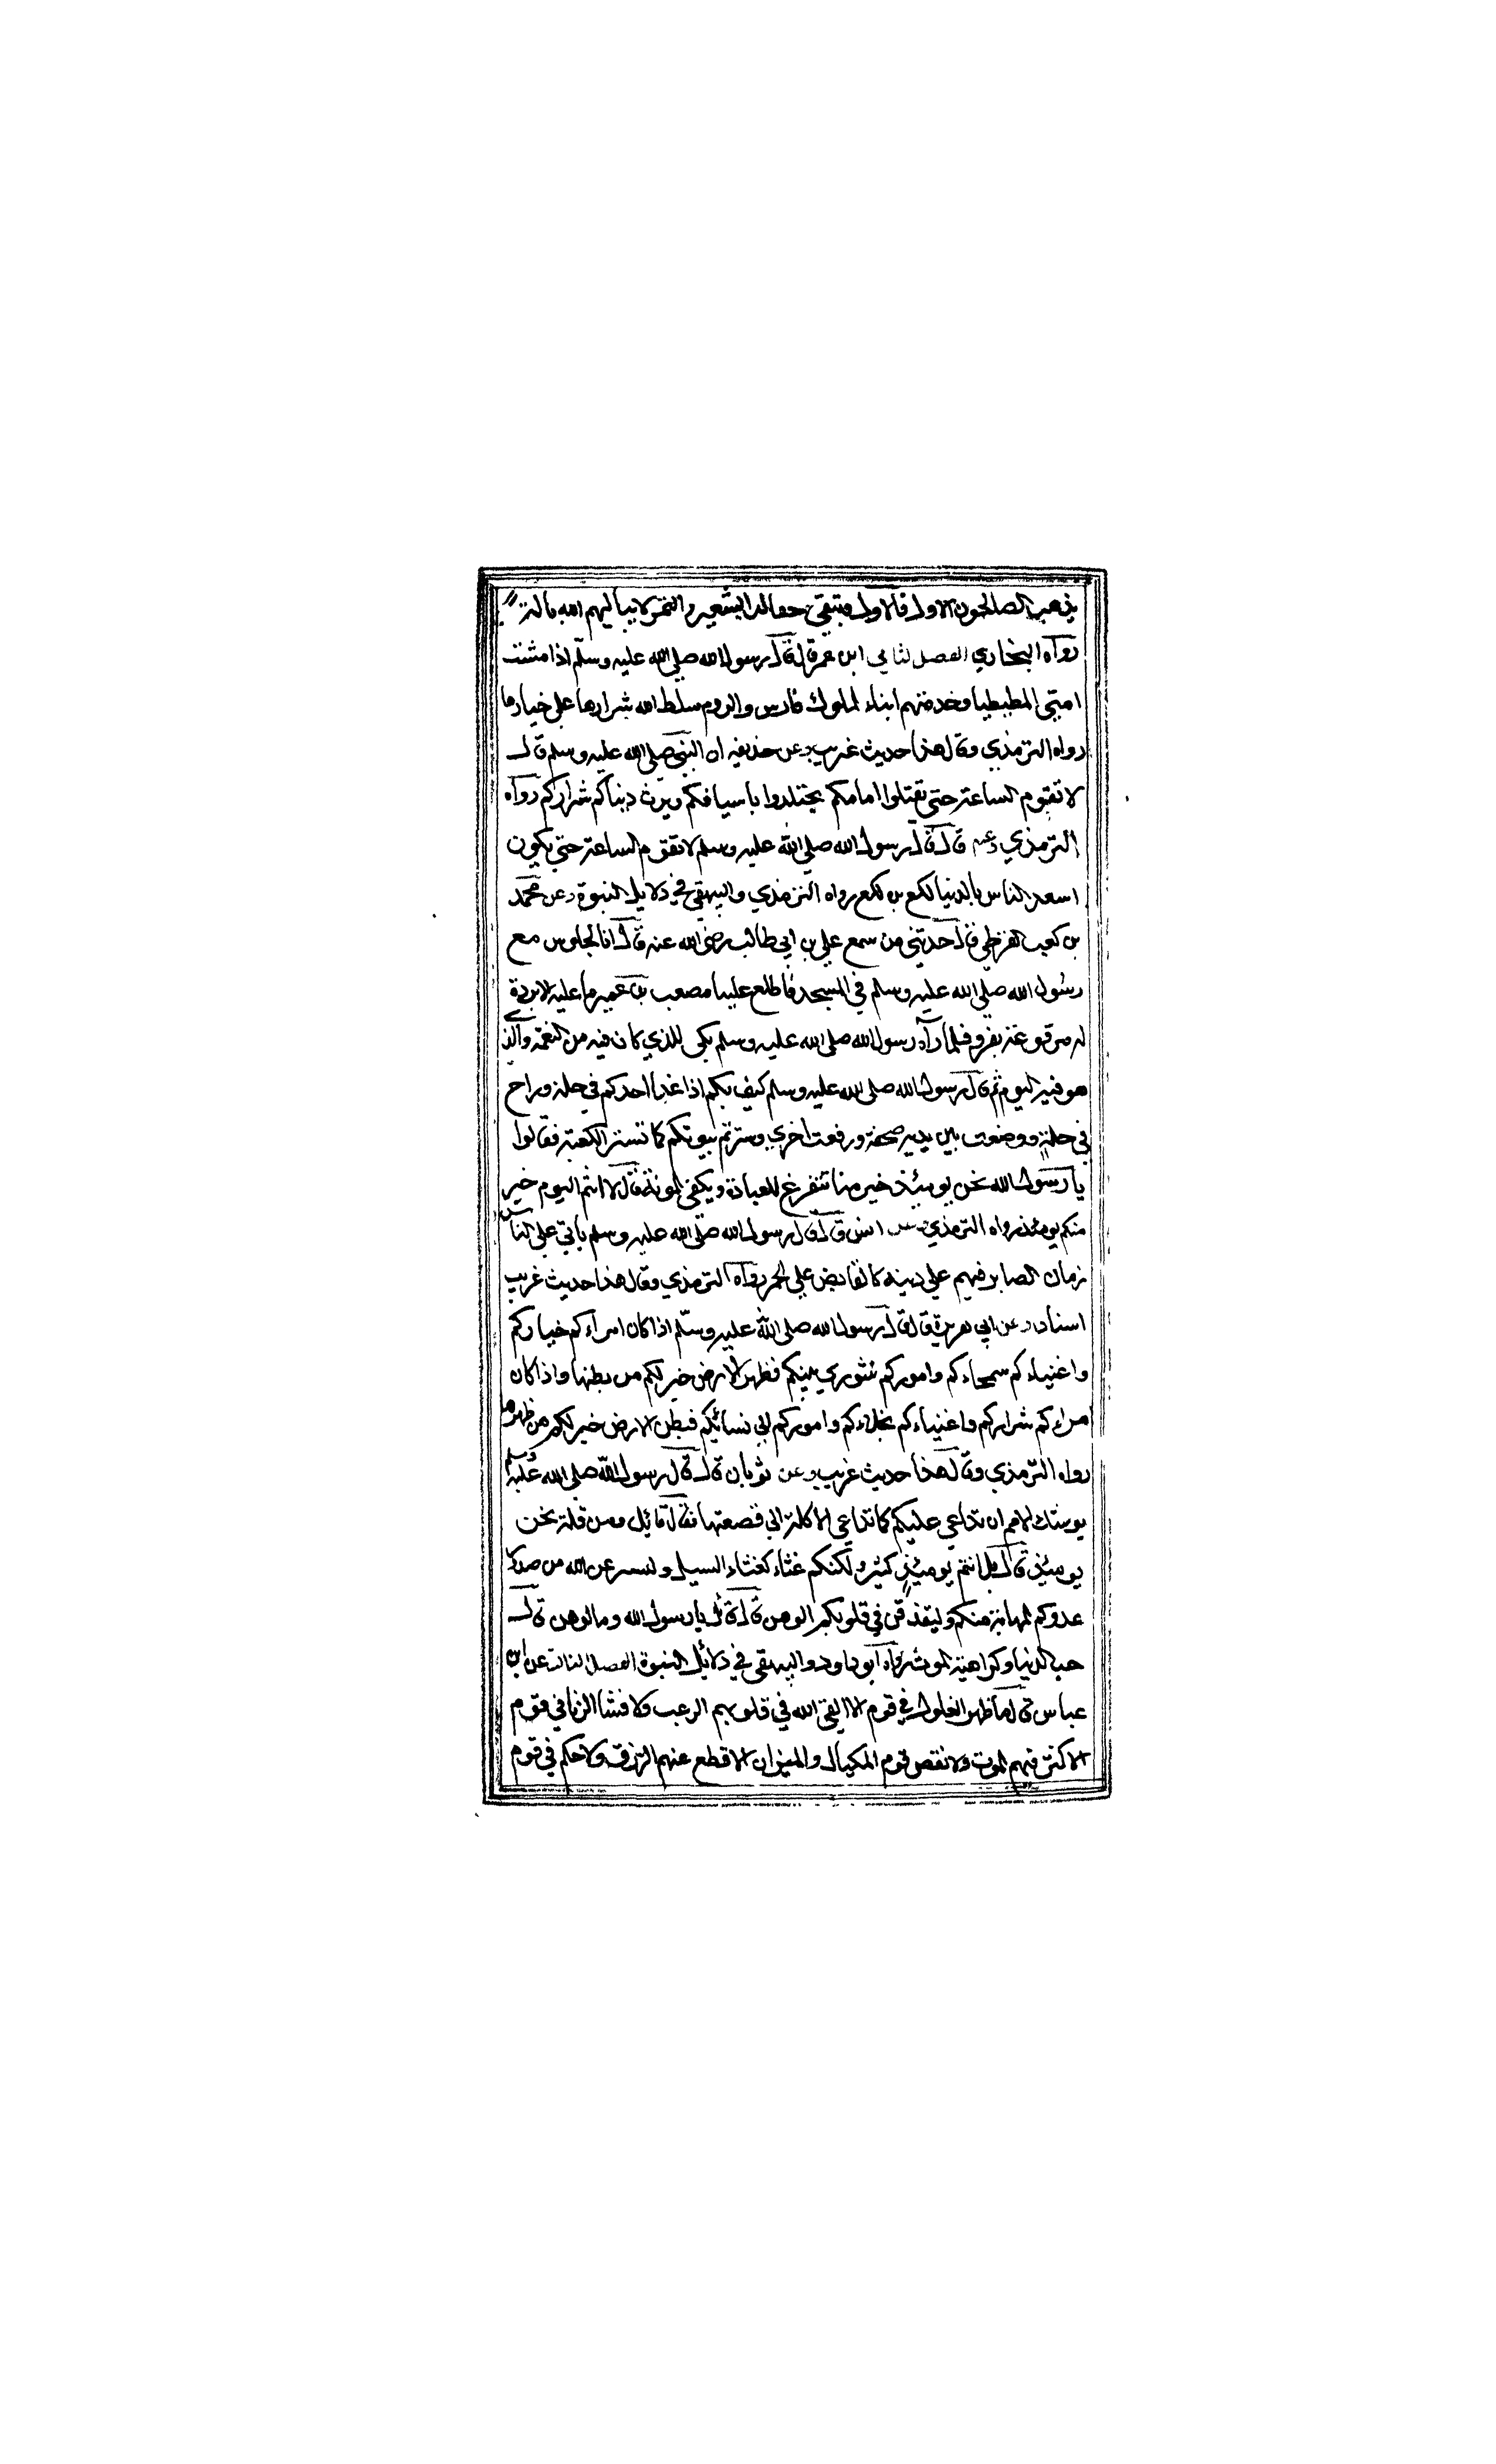 يذهب الصالحون الاول فالاول وتبقي حفالة الشعير والتمر لا يباليهم الله بالة
رواه البخاري الفصل الثاني ابن عمر قال قال رسول الله صلي الله عليه وسلم اذا مشت
امتي المطيطيا وخدمتهم ابناء الملوك فارس والروم سلط الله شرارها علي خيارها
رواه الترمذي وقال هذا حديث غريب وعن حذيفه ان النبي صلي الله عليه وسلم قال
لا تقوم الساعة حتي تقتلوا امامكم يجتلدوا باسيافكم ويرث دنياكم شراركم رواه
الترمذي وعنه قال قال رسول الله صلي الله عليه وسلم لا تقوم الساعة حتي يكون
اسعد الناس بالدنيا لكع بن لكع رواه الترمذي والبيهقي في دلايل النبوة وعن محمد
بن كعب القرظي قال حدثني من سمع علي بن ابي طالب رضي الله عنه قال انا لجلوس مع
رسول الله صلي الله عليه وسلم في المسجد فاطلع علينا مصعب بن عمير ما عليه الا بردة
له مرقوعة بفرو فلما رآه رسول الله صلي الله عليه وسلم بكي للذي كان فيه من النعمة والذي
هو فيه اليوم ثم قال رسول الله صلي الله عليه وسلم كيف بكم اذا غدا احدكم في حلة وراح
في حلة ووضعت بين يديه صحفة ورفعت اخري وسترتم بيوتكم كما تستر الكعبة فقالوا
يا رسول الله نحن يومئذ خير منا نتفرغ للعبادة ونكفي المونة قال لا انتم اليوم خير
منكم يومئذ رواه الترمذي وعن انس قال قال رسول الله صلي الله عليه وسلم ياتي علي الناس
زمان الصابر فيهم علي دينه كالقابض علي الجمر رواه الترمذي وقال هذا حديث غريب
اسنادا وعن ابي هريرة قال قال رسول الله صلي الله عليه وسلم اذا كان امراءكم خياركم
واغنياءكم سمحاءكم واموركم شوري بينكم فظهر الارض خير لكم من بطنها واذا كان
امراءكم شراركم واغنياءكم بخلاءكم واموركم الي نسائكم فبطن الارض خير لكم من ظهرها
رواه الترمذي وقال هذا حديث غريب وعن ثوبان قال قال رسول الله صلي الله عليه وسلم
يوشك الامم ان تداعي عليكم كما تداعي الاكلة الي قصعتها فقال قائل ومن قلة نحن
يومئذ قال بل انتم يومئذ كثير ولكنكم غثاء كغثاء السيل ولينزعن الله من صدور
عدوكم المهابة منكم وليقذفن في قلوبكم الوهن قال قائل يا رسول الله وما الوهن قال
حب الدنيا وكراهية الموت رواه ابو داود والبيهقي في دلائل النبوة الفصل الثالث عن ابن
عباس قال ما ظهر الغلول في قوم الا القي الله في قلوبهم الرعب ولا فشا الزنا في قوم
الا كثر فيهم الموت ولا نقص قوم المكيال والميزان الا قطع عنهم الرزق ولا حكم في قوم